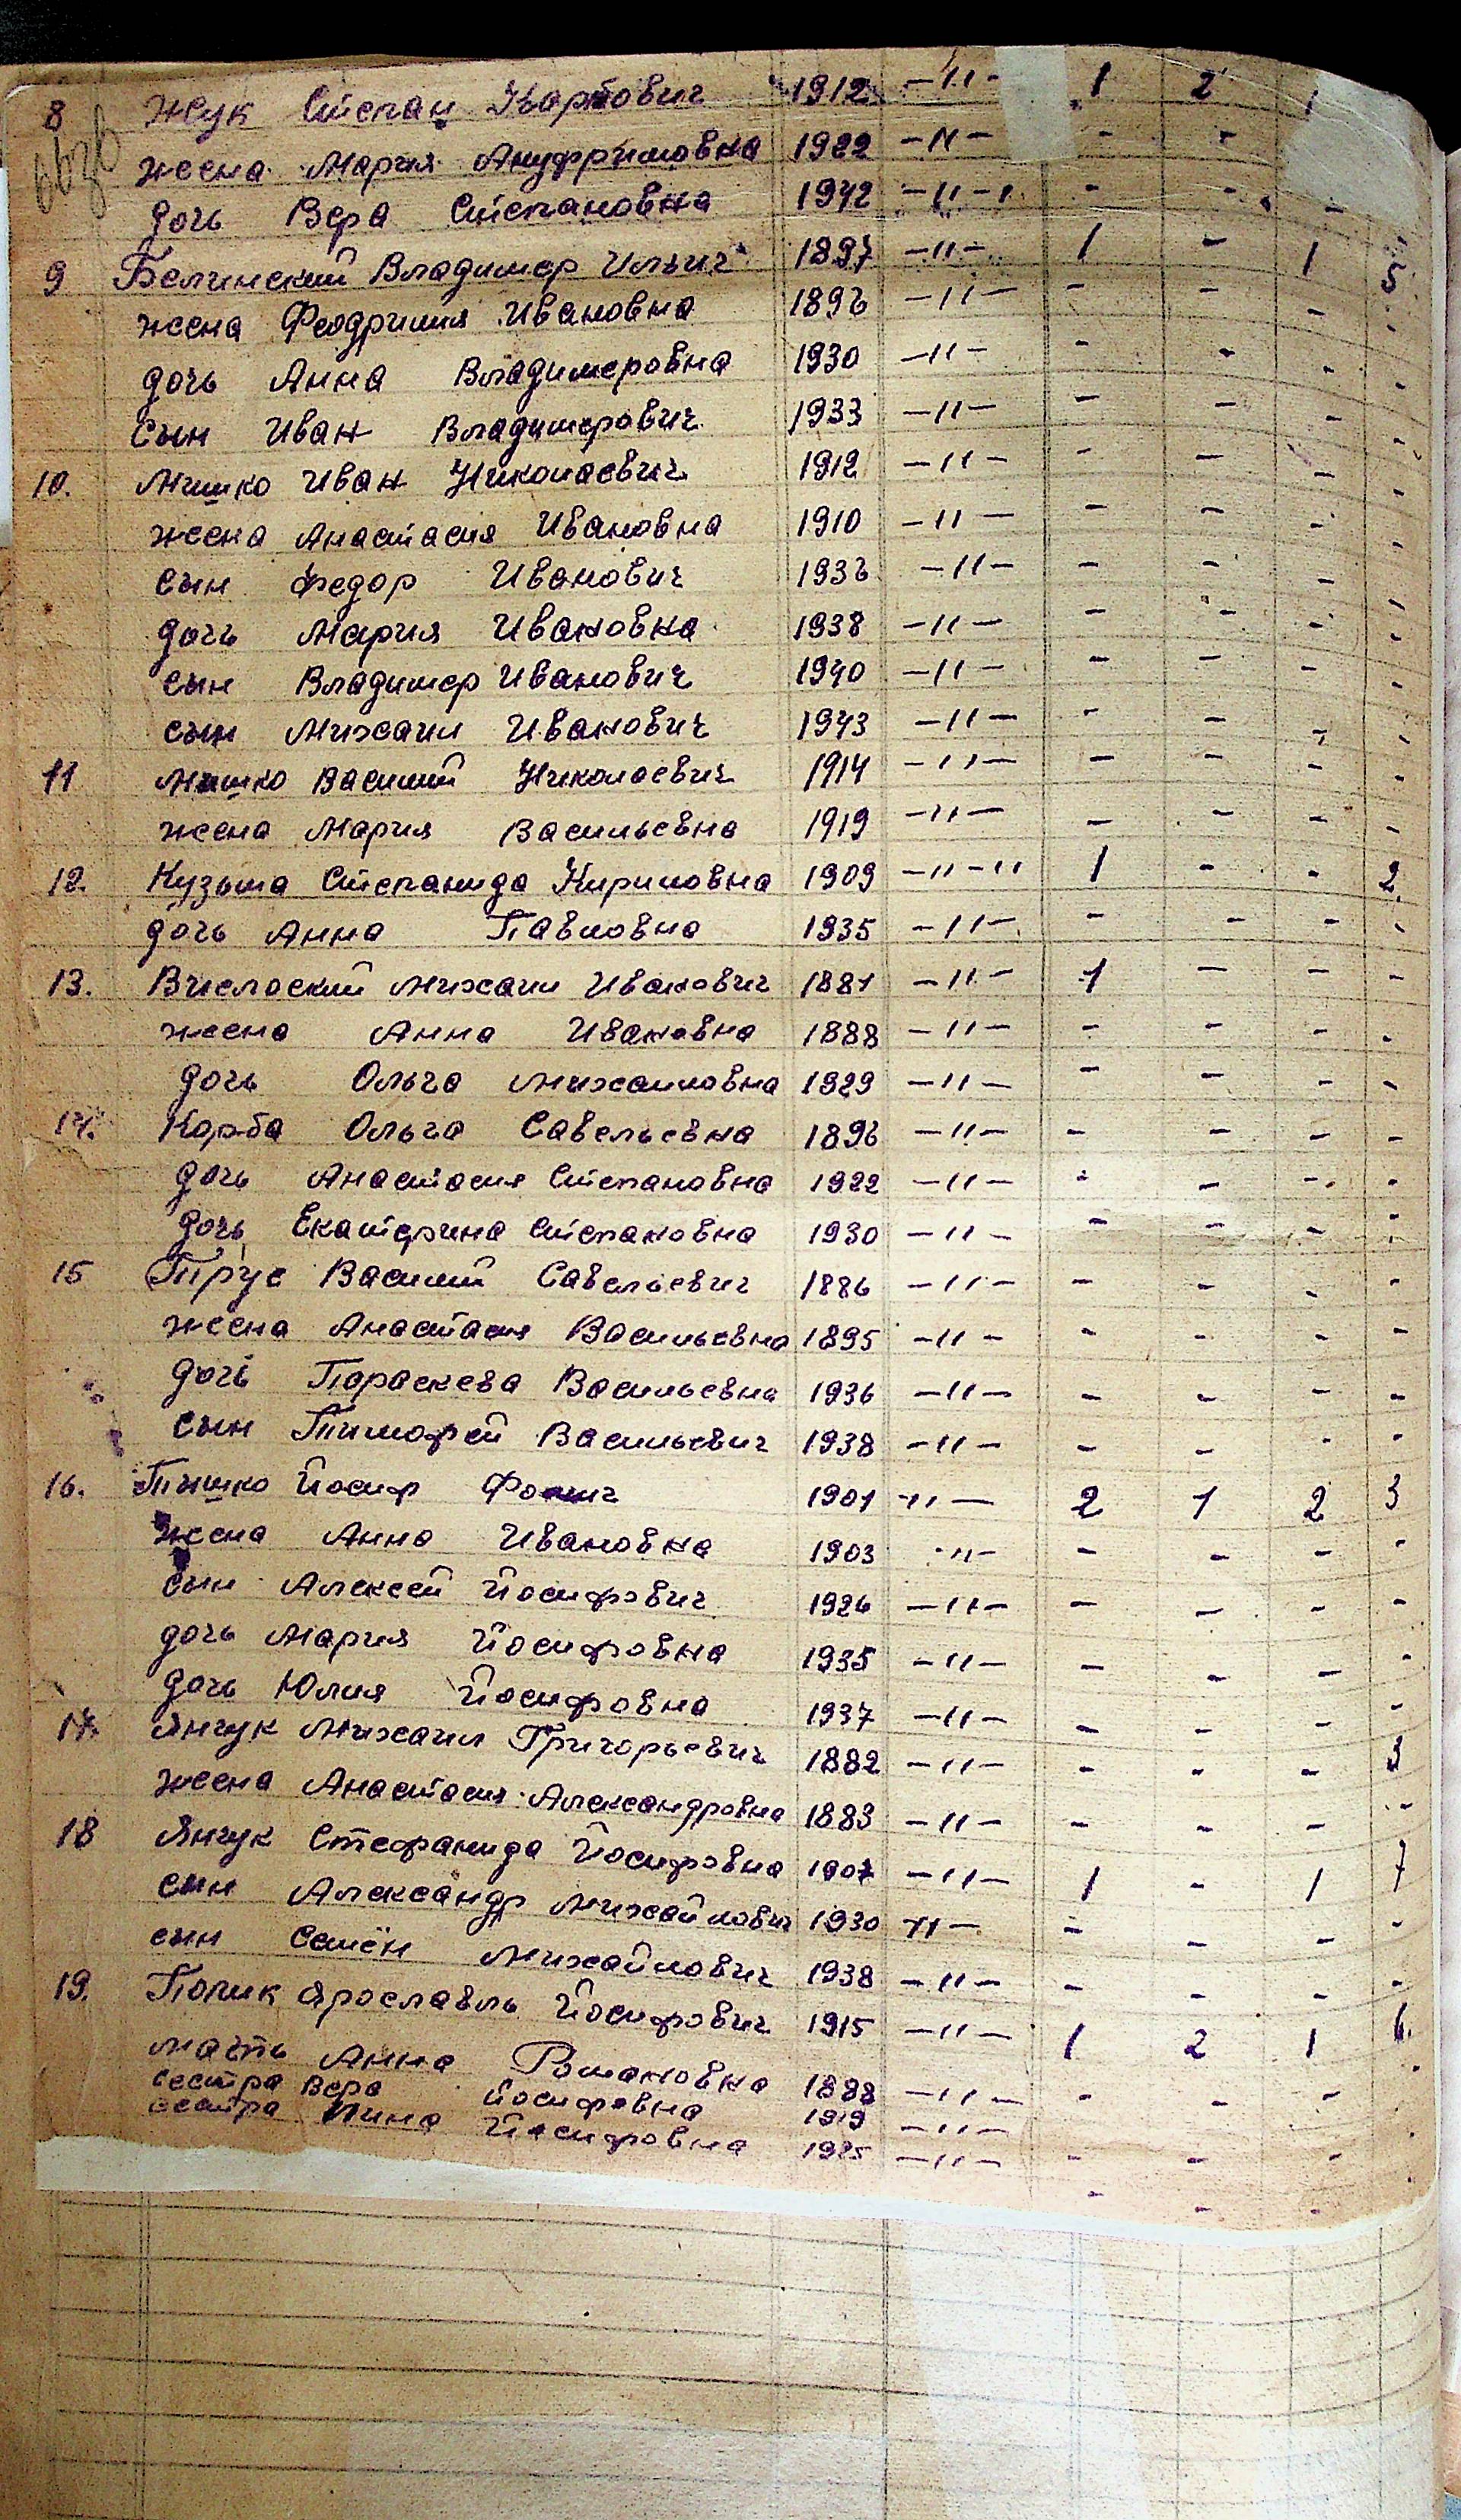 8 Жук Степан Карпович 1912 -〃- 1 2 1
жена Мария Ануфриловна 1922 -〃- - -
дочь Вера Степановна 1942 -〃- - - -
9 Белинский Владимер Ильич 1897 -〃- 1 - 1 5
жена Феодрипия Ивановна 1896 -〃- - - - -
дочь Анна Владимеровна 1930 -〃- - - - -
сын Иван Владимерович 1933 -〃- - - - -
10. Мишко Иван Николаевич 1912 -〃- - - - -
жена Анастасия Ивановна 1910 -〃- - - - -
сын Федор Иванович 1936 -〃- - - - -
дочь Мария Ивановна 1938 -〃- - - - -
сын Владимер Иванович 1940 -〃- - - - -
сын Михаил Иванович 1943 -〃- - - - -
11 Мишко Василий Николаевич 1914 -〃- - - - -
жена Мария Васильевна 1919 -〃- - - - -
12. Кузьма Степанида Кириловна 1909 -〃-〃 1 - - 2
дочь Анна Павловна 1935 -〃- - - - -
13. Вислоский Михаил Иванович 1881 -〃- 1 - - -
жена Анна Ивановна 1888 -〃- - - - -
дочь Ольга Михаиловна 1929 -〃- - - - -
14. Корба Ольга Савельевна 1896 -〃- - - - -
дочь Анастасия Степановна 1922 -〃- - - - -
дочь Екатерина Степановна 1930 -〃- - - - -
15 Трус Василий Савельевич 1886 -〃- - - - -
жена Анастасия Васильевна 1895 -〃- - - - -
дочь Параскева Васильевна 1936 -〃- - - - -
сын Тимофей Васильевич 1938 -〃- - - - -
16. Тишко Йосиф Фомич 1901 -〃- 2 1 2 3
жена Анна Ивановна 1903 -〃- - - - -
сын Алексей Йосифович 1926 -〃- - - - -
дочь Мария Йосифовна 1935 -〃- - - - -
дочь Юлия Йосифовна 1937 -〃- - - - -
17. Янчук Михаил Григорьевич 1882 -〃- - - - 3
жена Анастасия Александровна 1883 -〃- - - - -
18 Янчук Стефанида Йосифовна 1907 -〃- 1 - 1 7
сын Александр Михайлович 1930 〃- - - - -
сын Семён Михайлович 1938 -〃- - - - -
19. Попик Ярославль Йосифович 1915 -〃- 1 2 1 6.
мать Анна Романовна 1888 -〃- - - -
сестра Вера Йосифовна 1919 -〃- - - -
сестра Нина Йосифовна 1925 -〃- - - -